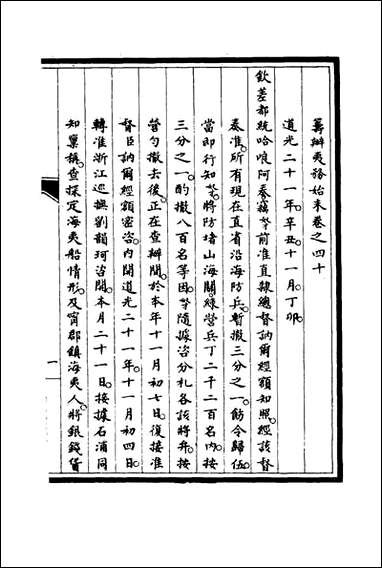 籌辦夷務始末卷之四十
道光二十一年。辛丑。十一月。丁卯。
欽差都統哈哴阿奏。竊。等前准直隸總督訥爾經額知照。經該督
奏准。所有現在直省沿海防兵。暫撤三分之一。飭令歸伍。
當即行知。將防堵山海關綠營兵丁二千二百名內。按
三分之一。酌撤八百名等因。等隨據咨分札各該將弁。按
營勻撤去後。正在查辦間。於本年十一月初七日。復接准
督臣訥爾經額密咨。內開道光二十一年。十一月初四日。
轉准浙江巡撫劉韻珂咨開。本月二十一日。接據石浦同
知稟稱。查探定海夷船情形。及甯郡鎮海夷人。將銀錢貨
一